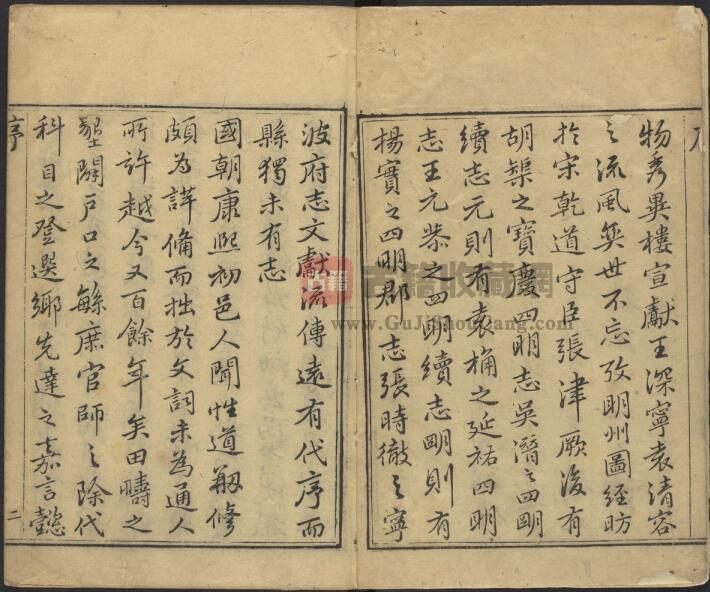 物秀異樓宣獻王深寧袁清容
之流風奕世不忘攷明州圖經昉
於宋乾道守臣張津厥後有
胡榘之寶慶四明志吳潛之四明
續志元則有袁桷之延祐四明
志王元恭之四明續志明則有
楊實之四明郡志張時徹之寧
波府志文獻流傳遠有代序而
縣獨未有志
國朝康熙初邑人聞性道剏修
頗為詳備而拙於文詞未為通人
所許越今又百餘年矣田疇之
墾闢戶口之繁庶官師之除代
科目之登選鄉先達之嘉言懿
序
二
古籍 古籍收藏網
www.GuJiShouCang.com